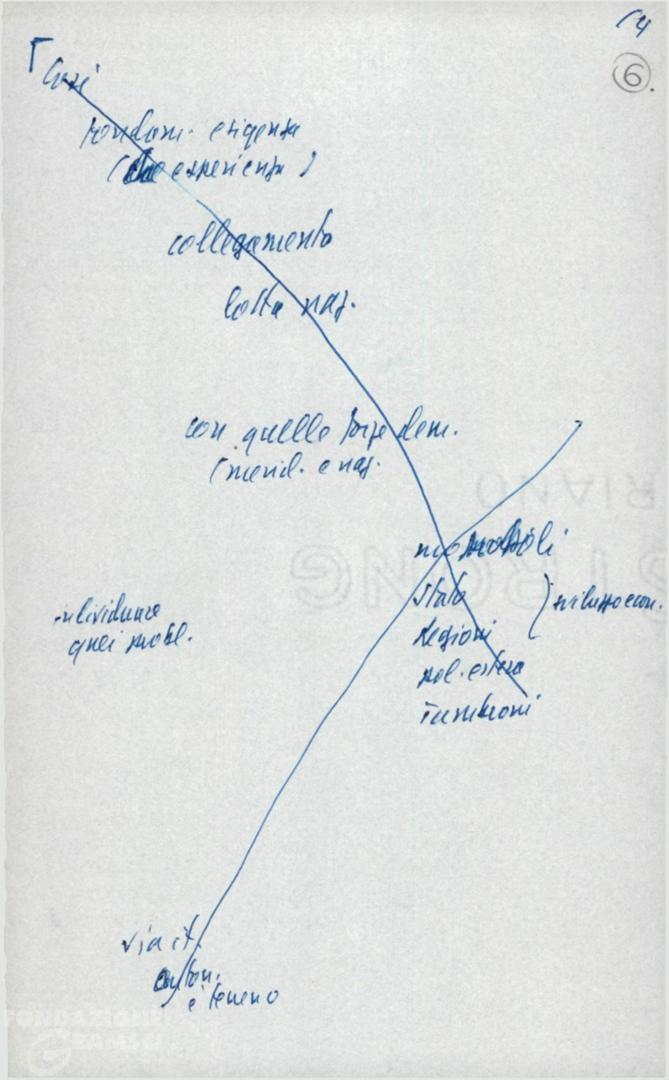 (4
6.
Così
fondam. esigenza
(che esperienza)
collegamento
lotta naz.
con quelle forze dem.
(merid. e naz.
monopoli
Stato
Regioni
sviluppo econ.
pol. estera
Tambroni
individuare
quei probl.
via it.
auton.
è terreno
FONDAZIONE
GRAMSCI